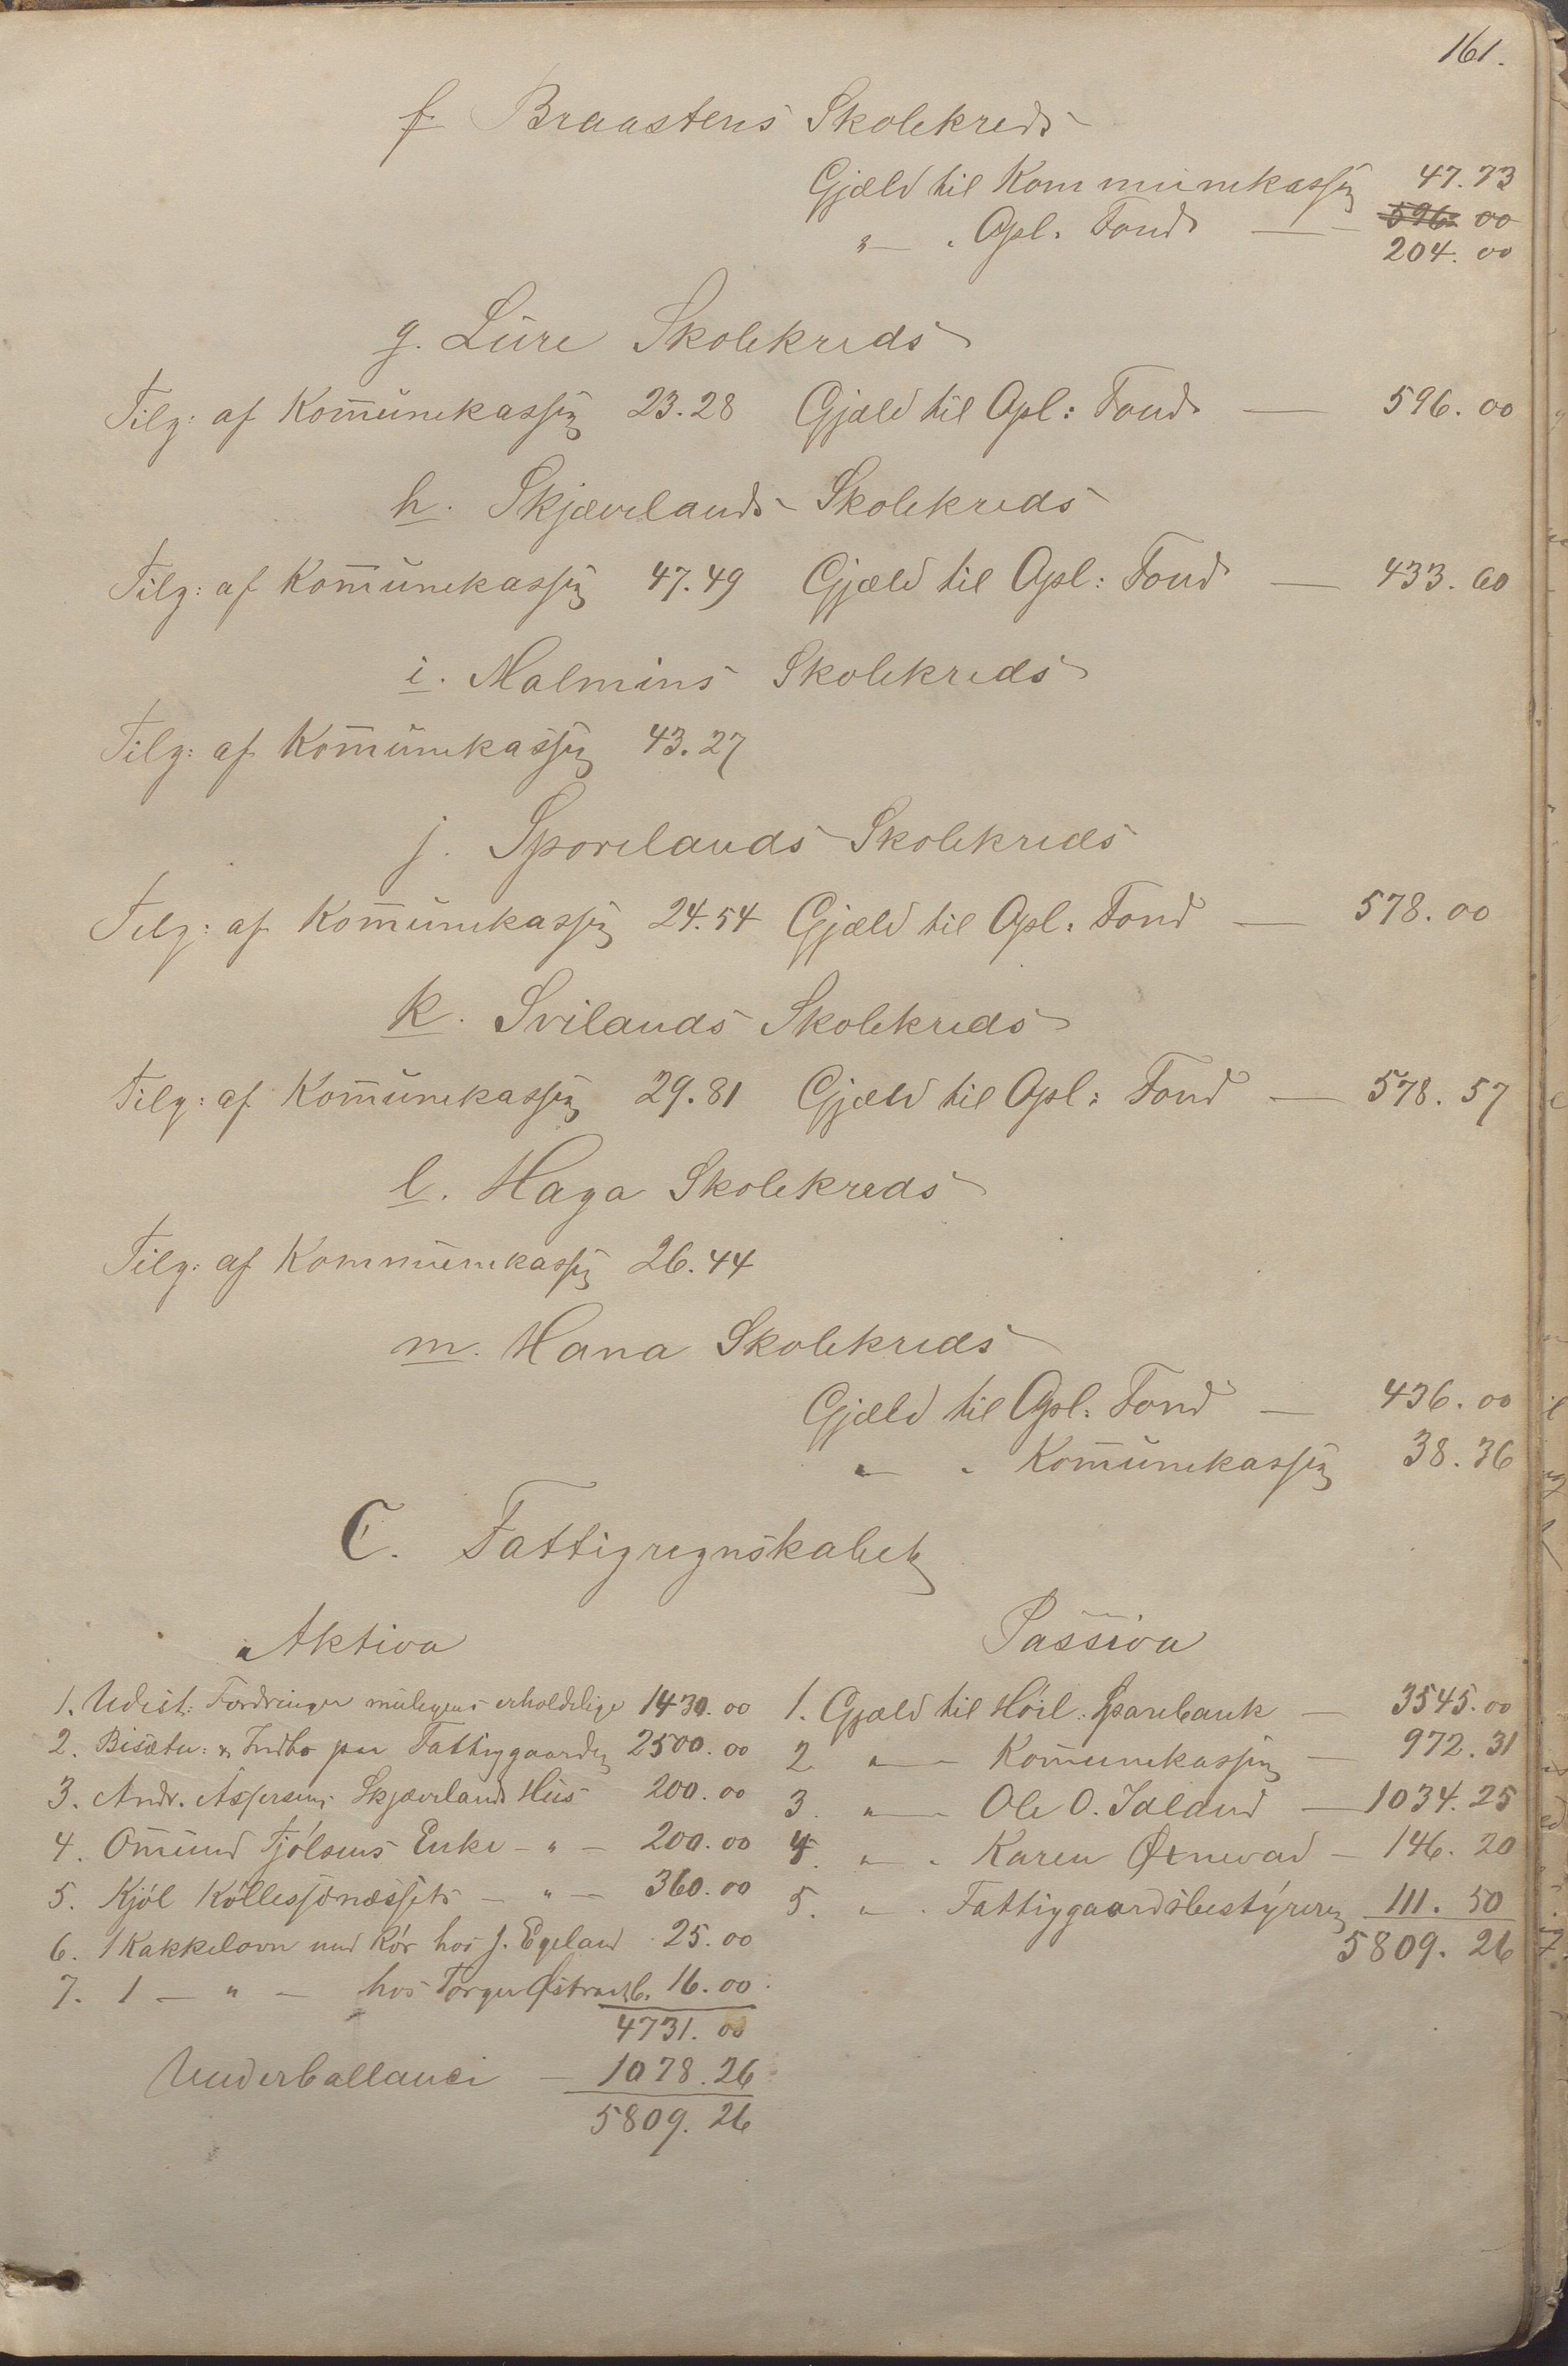 161.
f. Braastens Skolekreds
Gjæld til Kommunekassen 47.73
" " Opl. Fond — 596. 00
204. 00
g. Lure Skolekreds
Tilg: af Kommunekassen 23.28 Gjæld til Opl: Fond — 596. 00
h. Skjævelands Skolekreds
Tilg: af Kommunekassen 47.49 Gjæld til Opl: Fond — 433. 60
i. Malmins Skolekreds
Tilg: af Kommunekassen 43.27
j. Sporelands Skolekreds
Tilg: af Kommunekassen 24.54 Gjæld til Opl: Fond — 578. 00
k. Svilands Skolekreds
Tilg: af Kommunekassen 29.81 Gjæld til Opl: Fond — 578. 57
l. Haga Skolekreds
Tilg: af Kommunekassen 26.44
m. Hana Skolekreds
Gjæld til Opl: Fond — 436. 00
" " Kommunekassen 38. 36
C. Fattigregnskabet
Aktiva Passiva
1. Udest: Fordringer muligens erholdelige 1430. 00 1. Gjæld til Høil: Sparebank — 3545. 00
2. Besætn: & Indbo paa Fattiggaarden 2500. 00 2. " — Kommunekassen — 972. 31
3. Andr. Skjævelands Hus 200. 00 3. " — Ole O. Idland — 1034. 25
4. Ommund Fjølsens Enke - " — 200. 00 4. " " Karen — 146. 20
5. Kjøl — " — 360. 00 5. " " Fattiggaardsbestyreren 111. 50
6. 1 Kakkelovn med Rør hos J. Egeland 25. 00 5809. 26
7. 1 — " — hos Torger 16. 00
4731. 00
Underballance — 1078. 26
5809. 26